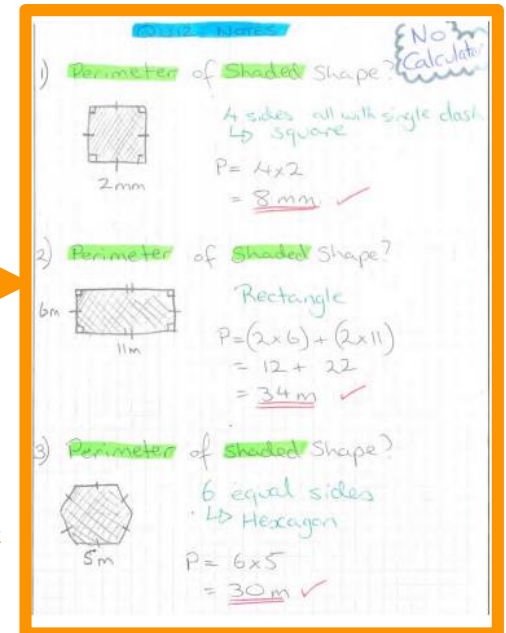 QUIZ NOTES
No Calculator
1) Perimeter of Shaded Shape?
4 sides all with single dash
↳ square
2mm
P= 4x2
= 8 mm ✓
2) Perimeter of Shaded Shape?
Rectangle
6m
11m
P=(2x6) + (2x11)
= 12 + 22
= 34 m ✓
3) Perimeter of shaded Shape?
6 equal sides
↳ Hexagon
5m
P= 6x5
= 30 m ✓